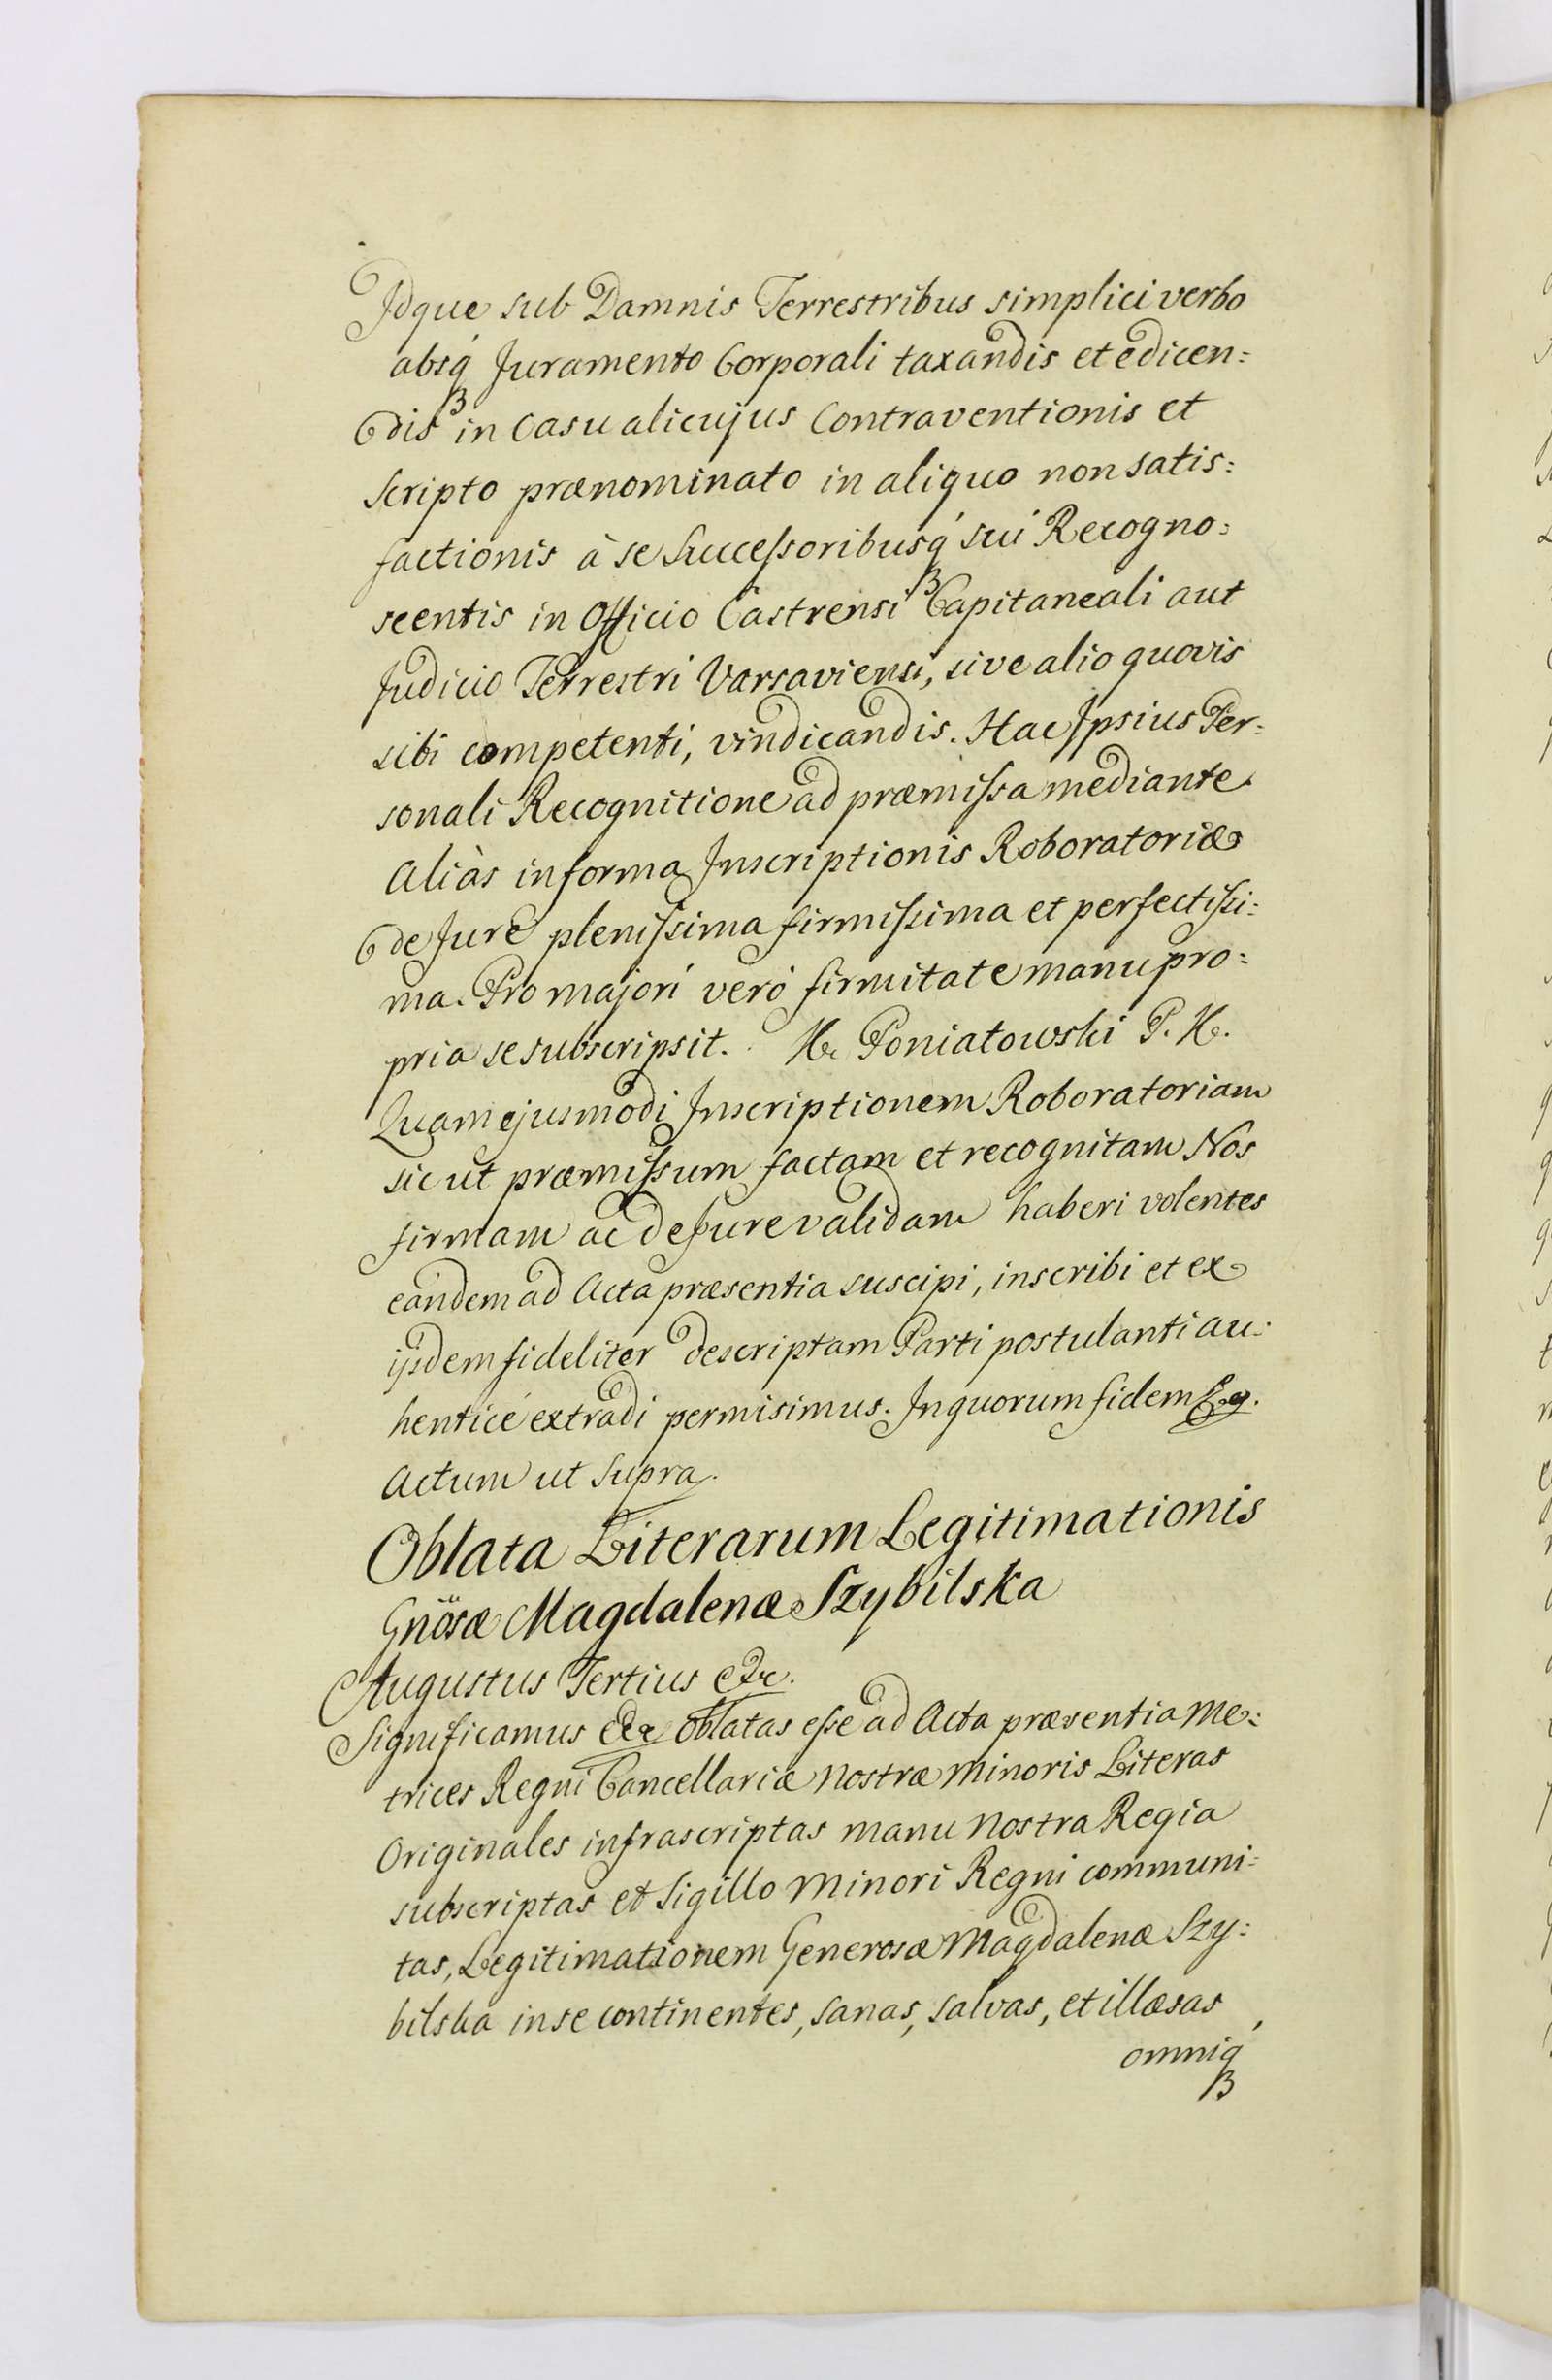 Idque sub Damnis Terrestribus simplici verbo
absq́ Juramento Corporali taxandis et edicen:
dis in Casu alicujus Contraventionis et
Scripto prænominato in aliquo non satis:
factionis à se Successoribusq́ sui Recogno:
scentis in Officio Castrensi Capitaneali aut
Judicio Terrestri Varsaviensi, sive alio quovis
sibi competenti, vindicandis. Hac Ipsius Per:
sonali Recognitione ad præmissa mediante
Aliàs in forma Inscriptionis Roboratoriæ
de Jure plenissima firmissima et perfectissi:
ma. Pro majori verò firmitate manu pro:
pria se subscripsit. Poniatowski P. K.
Quam ejusmodi Inscriptionem Roboratoriam
sic ut præmissum factam et recognitam Nos
firmam ac de Jure validam haberi volentes
eandem ad Acta præsentia suscipi, inscribi et ex
ijsdem fideliter descriptam Parti postulanti au:
henticè extradi permisimus. In quorum fidem &.
Actum ut Supra.
Oblata Literarum Legitimationis
Gnösæ Magdalenæ Szybilska
Augustus Tertius &c.
Significamus &c Oblatas esse ad Acta præsentia Me:
trices Regni Cancellariæ Nostræ Minoris Literas
Originales infrascriptas manu Nostra Regia
subscriptas et Sigillo Minori Regni communi:
tas, Legitimationem Generosæ Magdalenæ Szy:
bilska in se continentes, sanas, salvas, et illæsas
omniq́